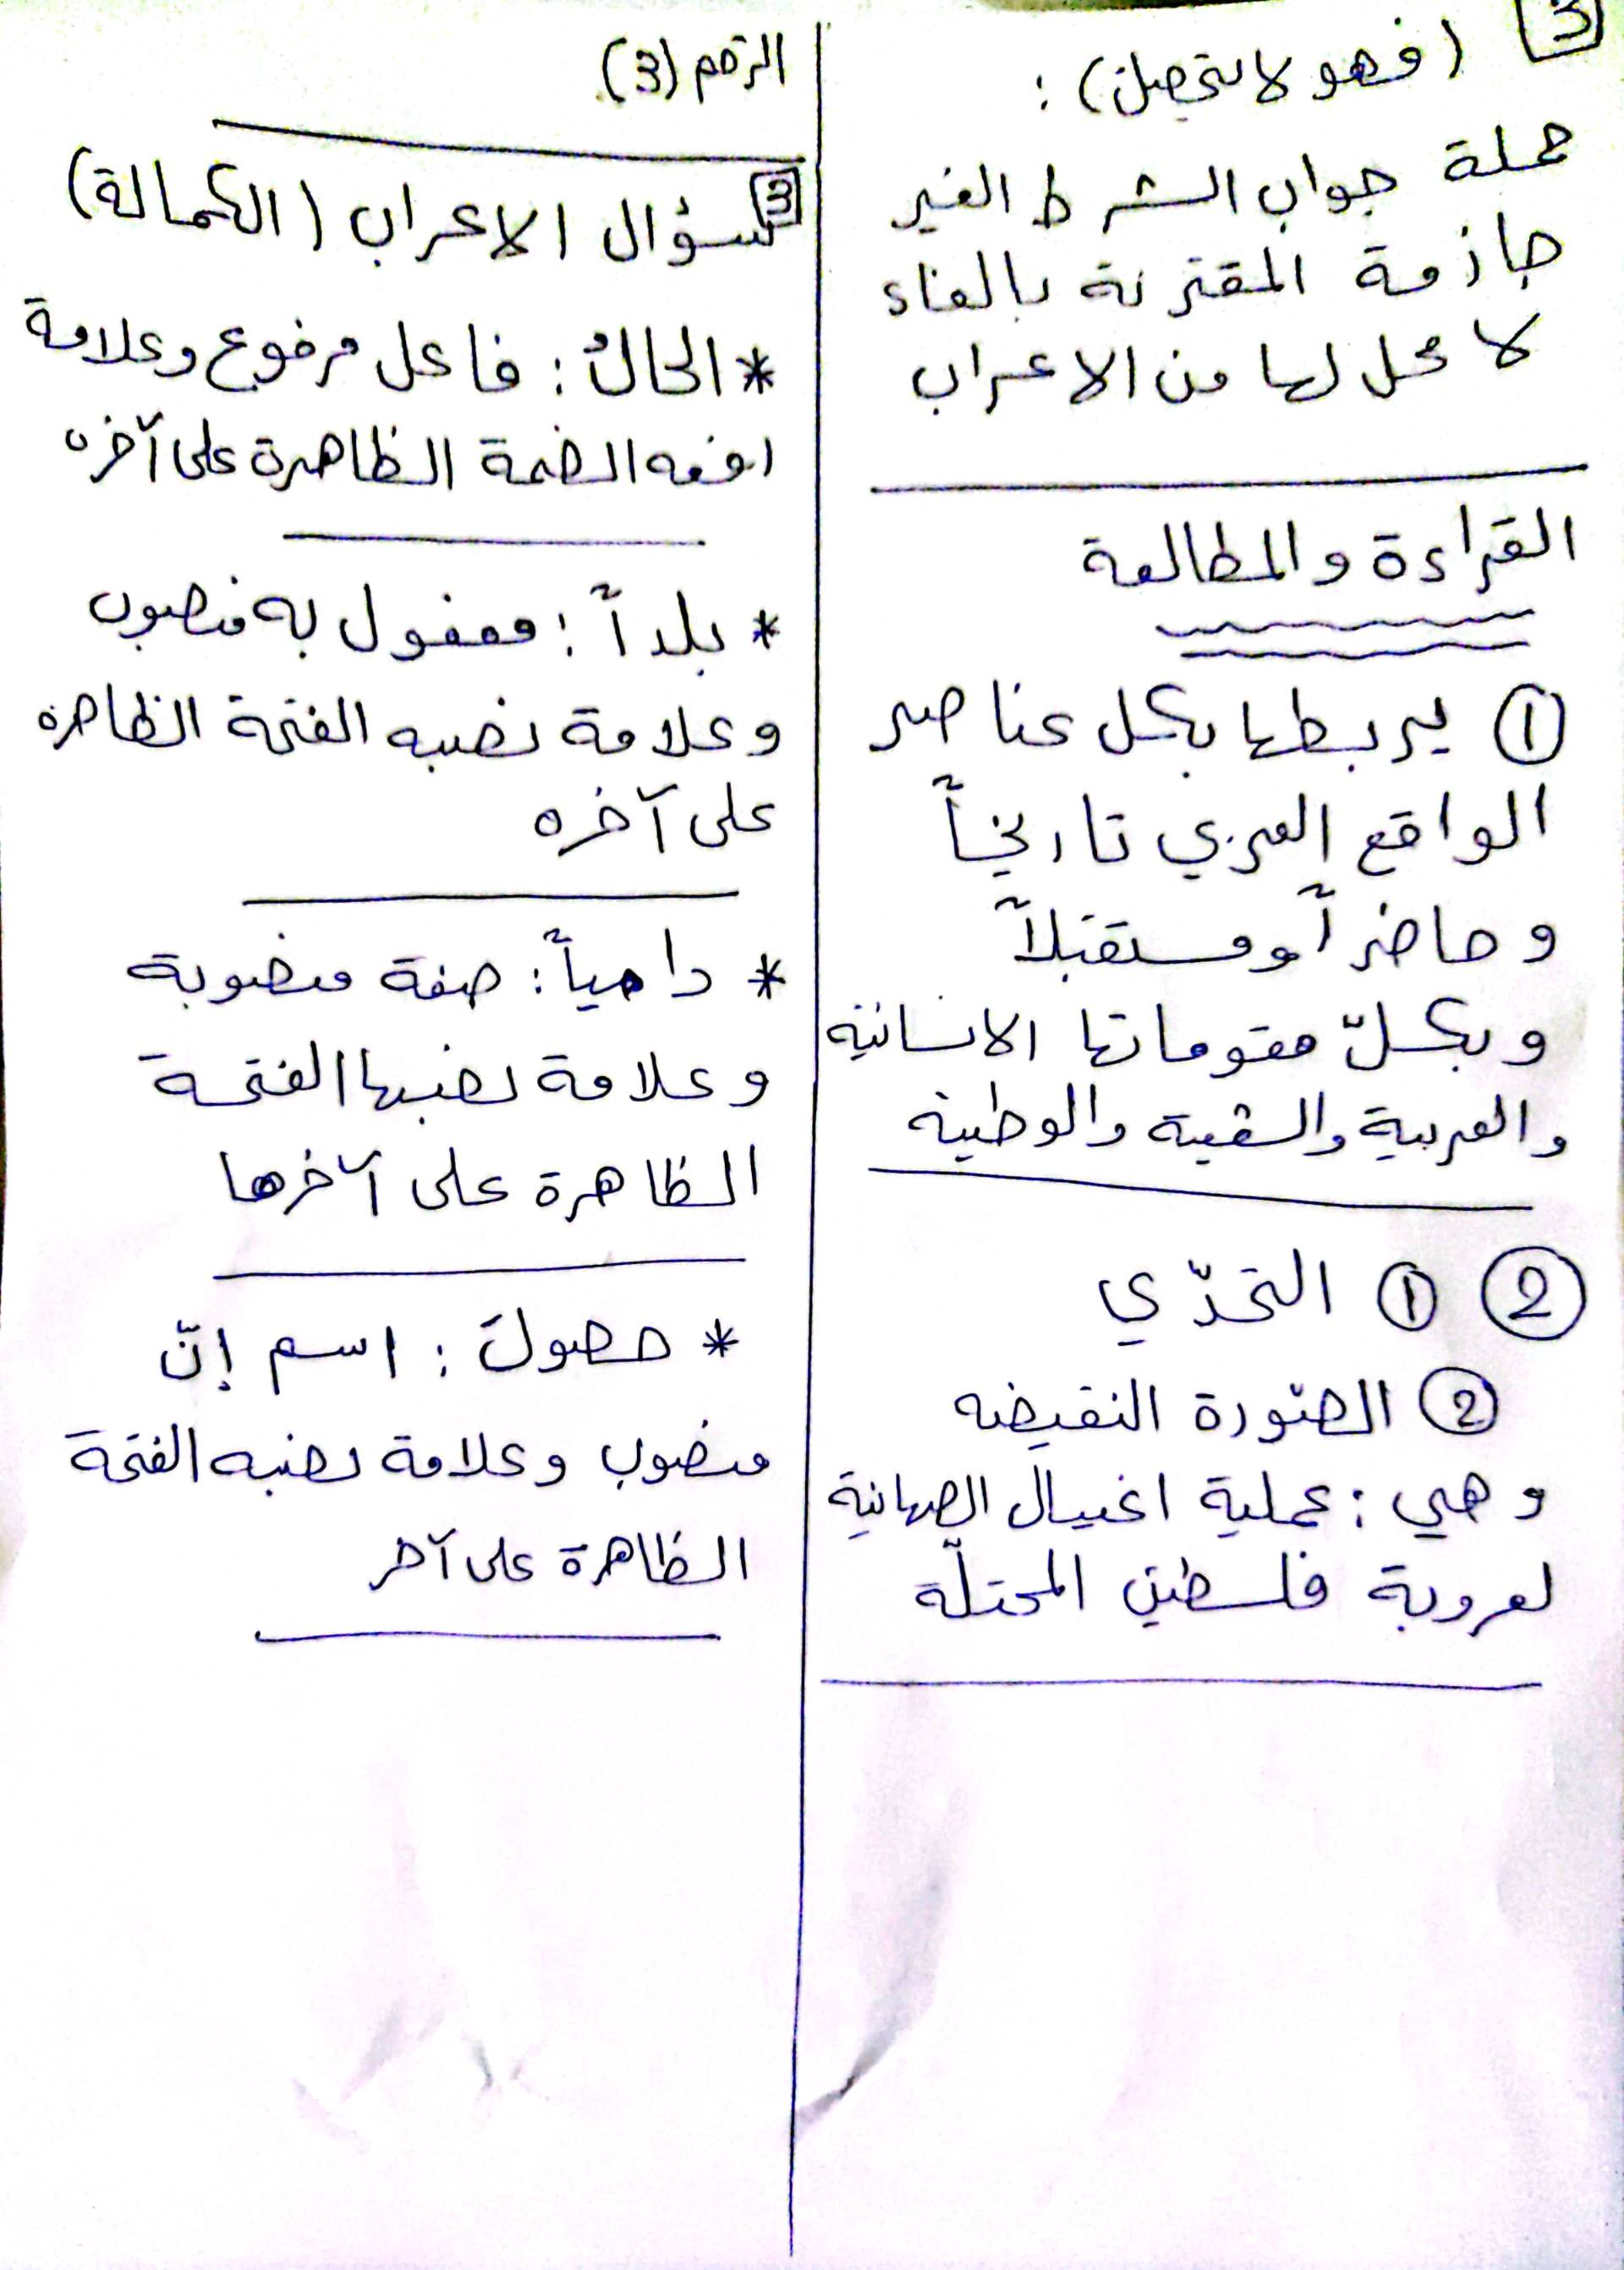 3
(فهو لا يتحصل) :
جملة جواب الشرط الغير
جازمة المقترنة بالفاء
لا محل لها من الاعراب
القراءة والمطالعة
① يربطها بكل عناصر
الواقع العربي تاريخاً
وحاضراً ومستقبلاً
وبكلّ مقوماتها الانسانية
والعربية والوطنية
② ① التحدّي
② الصّورة النقيضه
وهي : عملية اغتيال الصهاينة
لعروبة فلسطين المحتلّة
الرقم (3)
3 سؤال الاعراب (الكمالة)
* الحالُ : فاعل مرفوع وعلامة
رفعه الضمة الظاهرة على آخره
* بلداً : مفعول به منصوب
وعلامة نصبه الفتحة الظاهرة
على آخره
* دامياً : صفة منصوبة
وعلامة نصبها الفتحة
الظاهرة على آخرها
* حصولَ : اسم إنّ
منصوب وعلامة نصبه الفتحة
الظاهرة على آخر